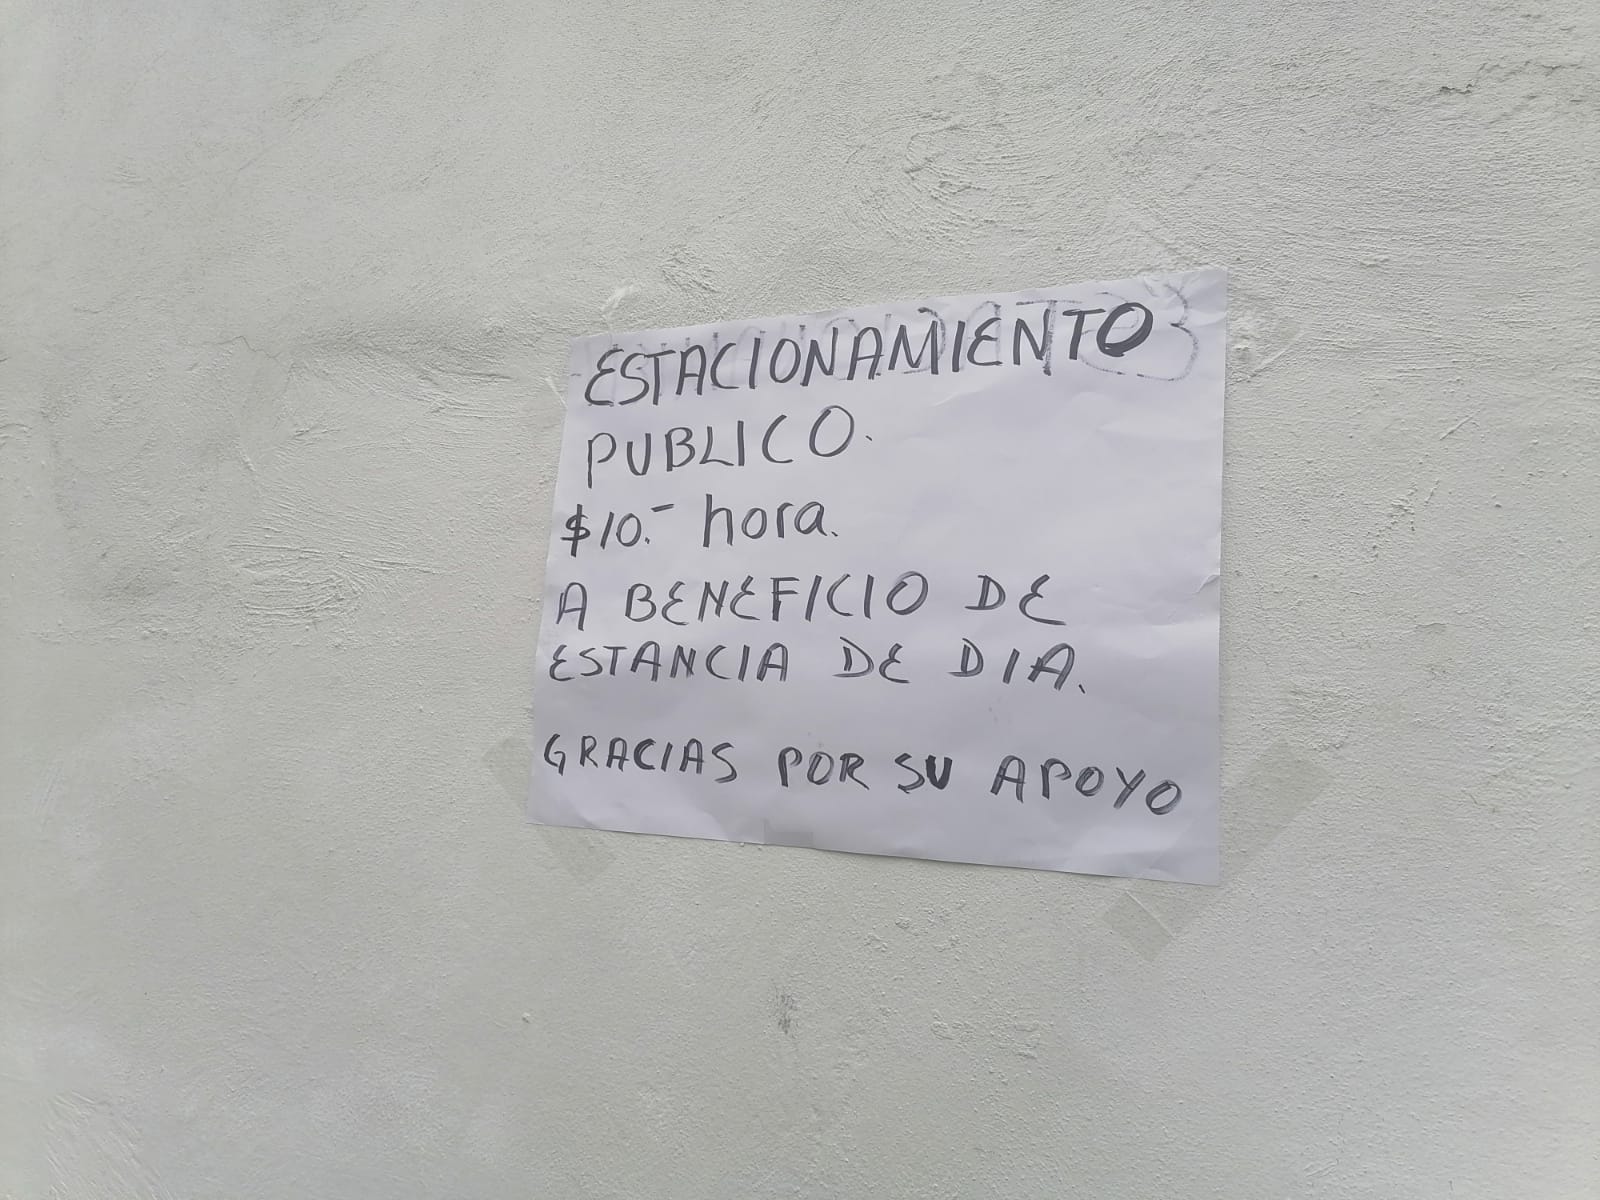 ESTACIONAMIENTO
PUBLICO.
$10.- hora.
A BENEFICIO DE
ESTANCIA DE DIA.
GRACIAS POR SU APOYO